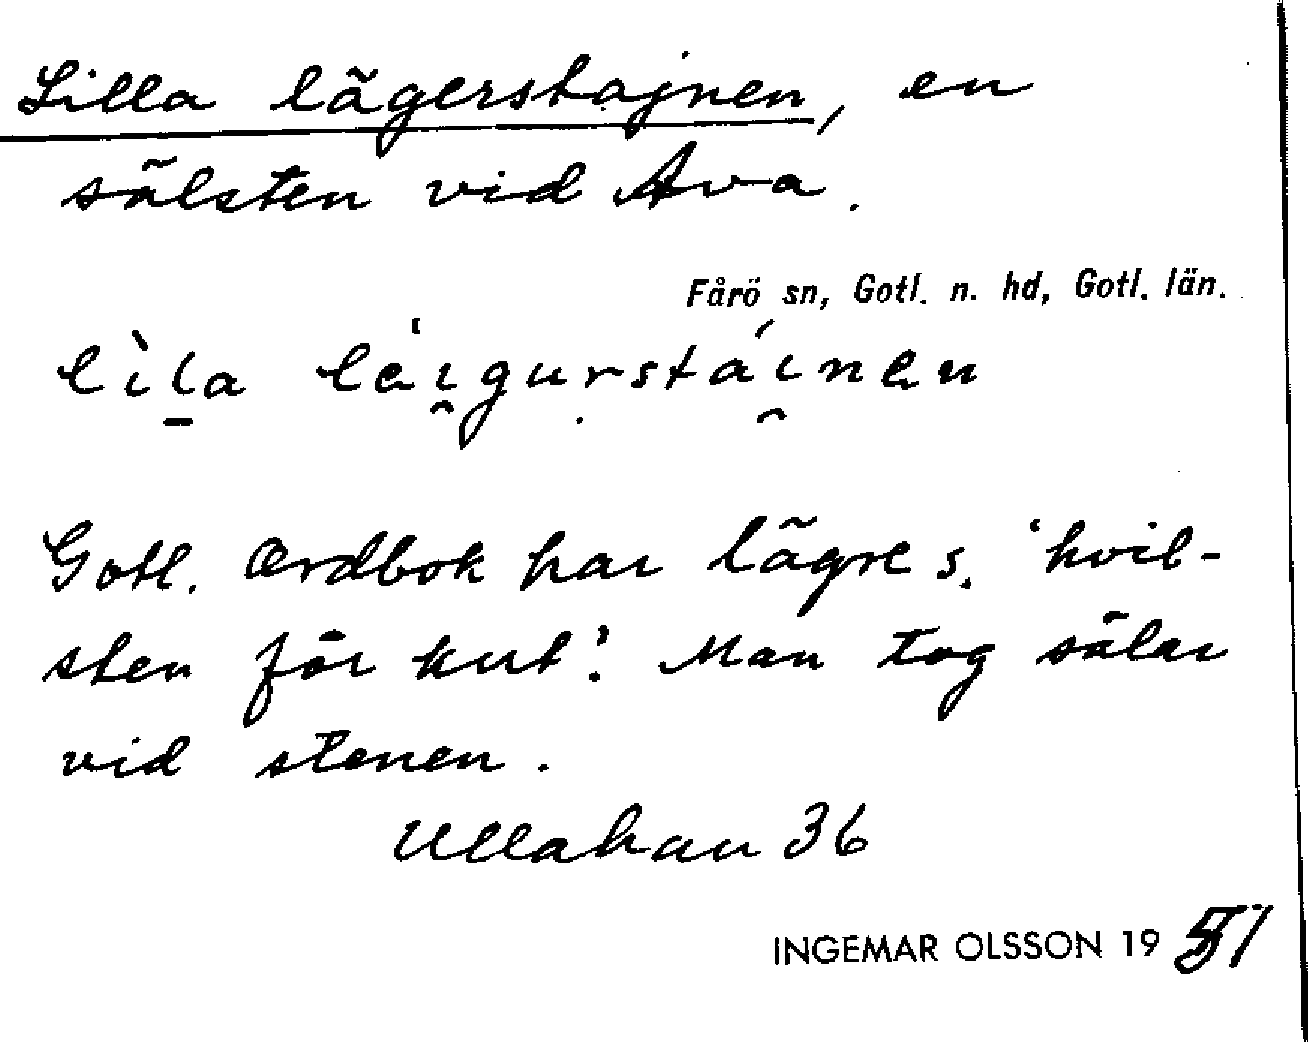 Lilla lägerstajnen, en
sälsten vid Ava.
Fårö sn, Gotl. n. hd, Gotl. län.
lìla
Gotl. Ordbok har lägre s. 'hvil-
sten för kut'. Man tog sälar
vid stenen.
Ullahau 36
INGEMAR OLSSON 19 51